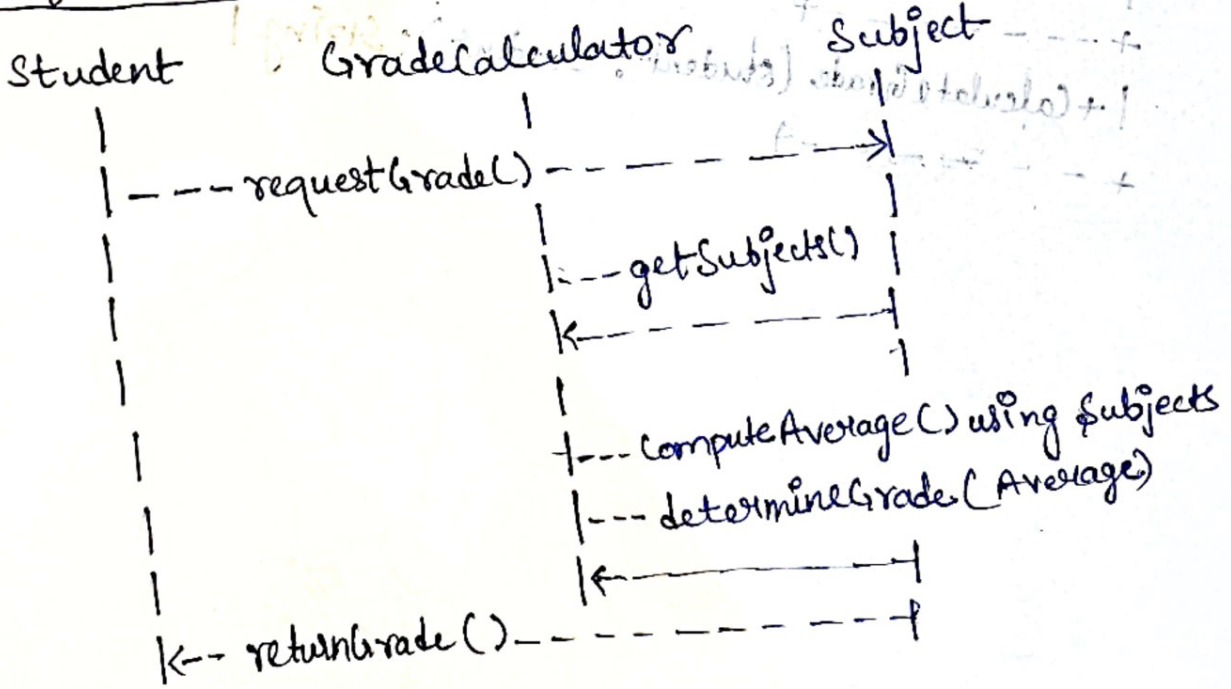 Student GradeCalculator Subject
requestGrade()
getSubjects()
computeAverage() using Subjects
determineGrade(Average)
returnGrade()